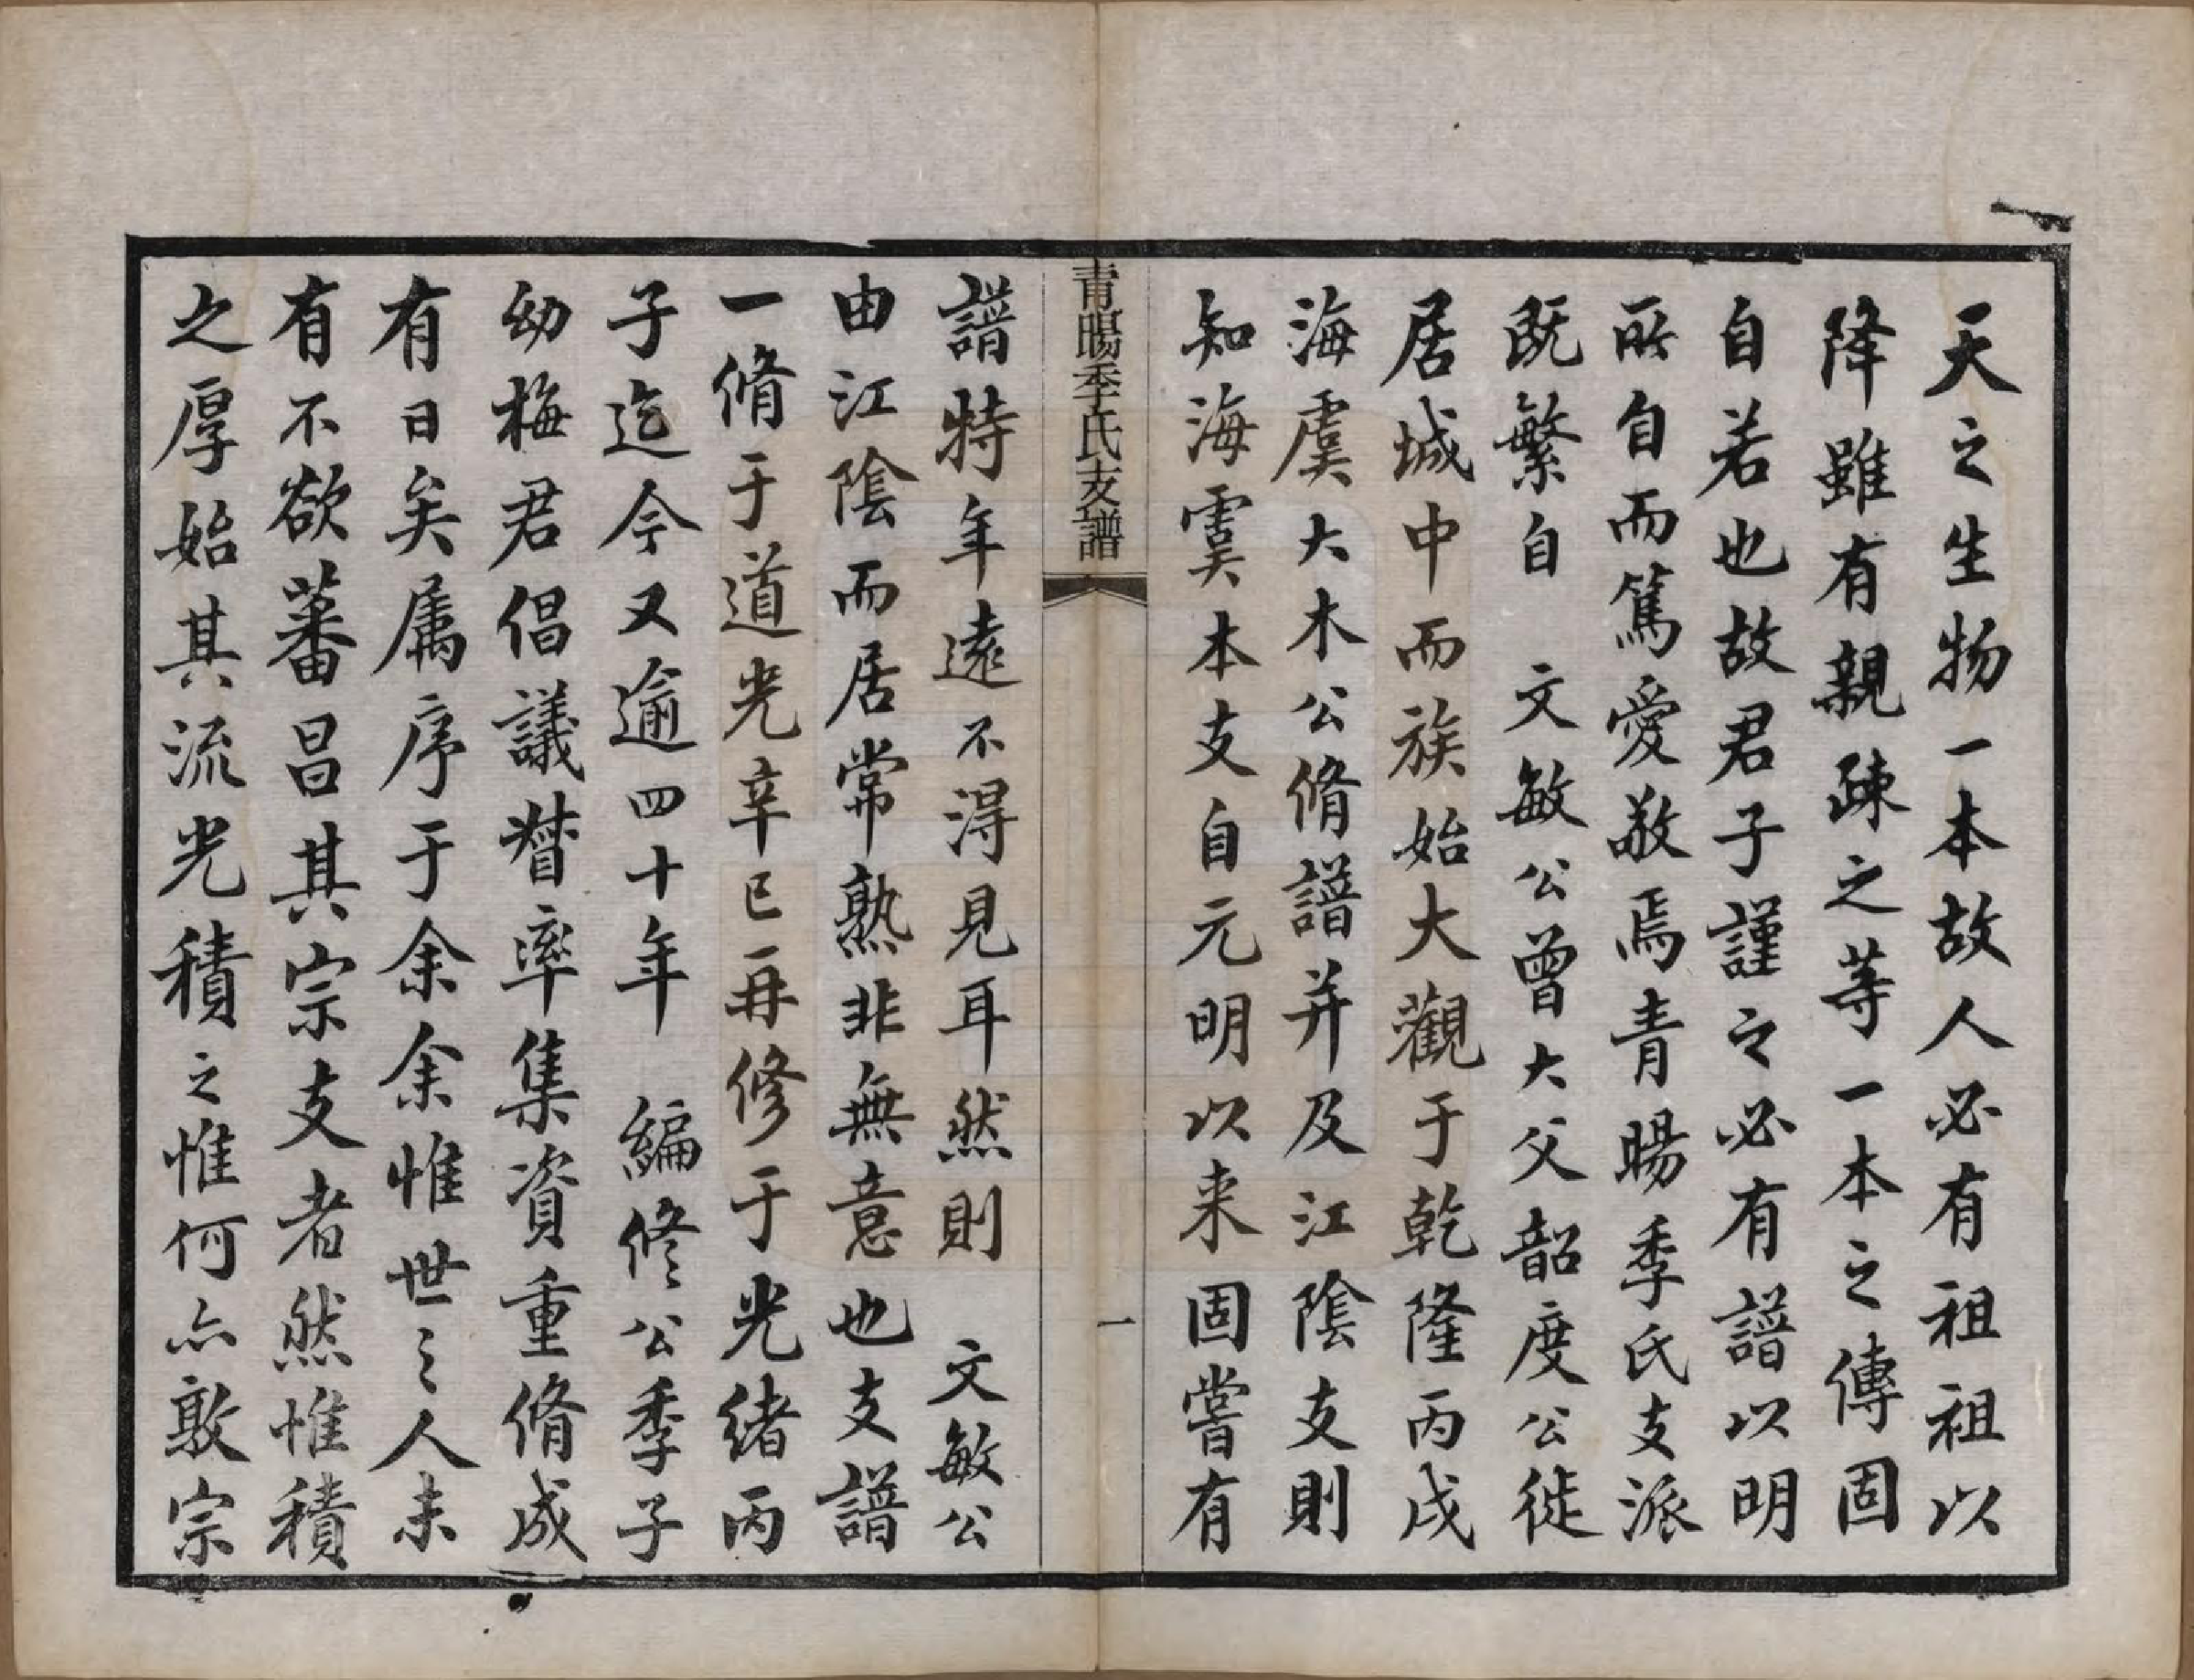 天之生物一本故人必有祖祖以
降雖有親疎之等一本之傳固
自若也故君子謹之必有譜以明
所自而篤愛敬焉青暘季氏支派
既繁自 文敏公曾大父韶度公徙
居城中而族始大觀于乾隆丙戌
海虞大木公脩譜并及江陰支則
知海虞本支自元明以来固嘗有
青暘季氏支譜
一
譜特年遠不得見耳然則 文敏公
由江陰而居常熟非無意也支譜
一脩于道光辛巳再修于光緒丙
子迄今又逾四十年 編修公季子
幼梅君倡議督率集資重脩成
有日矣属序于余余惟世之人未
有不欲蕃昌其宗支者然惟積
之厚始其流光積之惟何亦敦宗